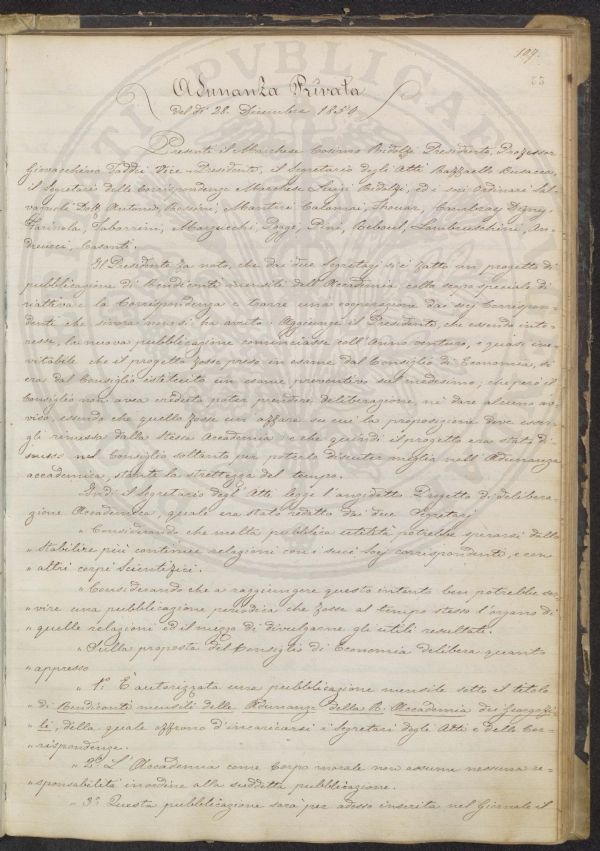 127.
Adunanza Privata
del dì 28. Dicembre 1850
Presenti il Marchese Cosimo Ridolfi Presidente, Professor
Giovacchino Taddei Vice-Presidente, il Segretario degli Atti Raffaello Busacca,
il Segretario delle Corrispondenze Marchese Luigi Ridolfi, ed i soci Ordinari Sal-
vagnoli Dott. Antonio, Rossini, Manteri, Calamai, Thouar, Cambray Digny,
Farinola, Tabarrini, Mazzucchi, Poggi, Pini, Reboul, Lambruschini, An-
dreucci, Casanti.
Il Presidente fa noto, che dai due Segretarj si è fatto un progetto di
pubblicazione di Rendiconti mensili dell'Accademia collo scopo speciale di
riattivare la Corrispondenza e trarre una cooperazione dai socj Corrispon-
denti che sinora non si ha avuto. Aggiunge il Presidente, che essendo inte-
resse, la nuova pubblicazione cominciasse coll'Anno venturo, e quasi ine-
vitabile che il progetto fosse preso in esame dal Consiglio di Economia, si
era dal Consiglio istituito un esame preventivo sul medesimo; che però il
Consiglio non avea creduto poter prendere deliberazione, nè dare alcuno av-
viso, essendo che quello fosse un affare su cui la proposizione deve esser-
gli rimessa dalla stessa Accademia e che quindi il progetto era stato di-
scusso nel Consiglio soltanto per poterlo discuter meglio nell'Adunanza
accademica, stante la strettezza del tempo.
Indi il Segretario degli Atti legge l'anzidetto Progetto di delibera-
zione Accademica, quale era stato redatto dai due Segretarj
" Considerando che molta pubblica utilità potrebbe sperarsi dallo
" stabilire più continue relazioni con i suoi Socj corrispondenti, e con
" altri corpi Scientifici.
" Considerando che a raggiungere questo intento ben potrebbe ser-
" vire una pubblicazione periodica che fosse al tempo stesso l'organo di
" quelle relazioni ed il mezzo di divulgarne gli utili resultati.
" Sulla proposta del Consiglio di Economia delibera quanto
" appresso
" 1.° È autorizzata una pubblicazione mensile sotto il titolo
" di Rendiconti mensili delle Adunanze della R. Accademia dei Georgofi-
" li, della quale offrono d'incaricarsi i Segretari degli Atti e delle Cor-
" rispondenze.
" 2.° L'Accademia come Corpo morale non assume nessuna re-
" sponsabilità in ordine alla suddetta pubblicazione.
" 3.° Questa pubblicazione sarà per adesso inserita nel Giornale il